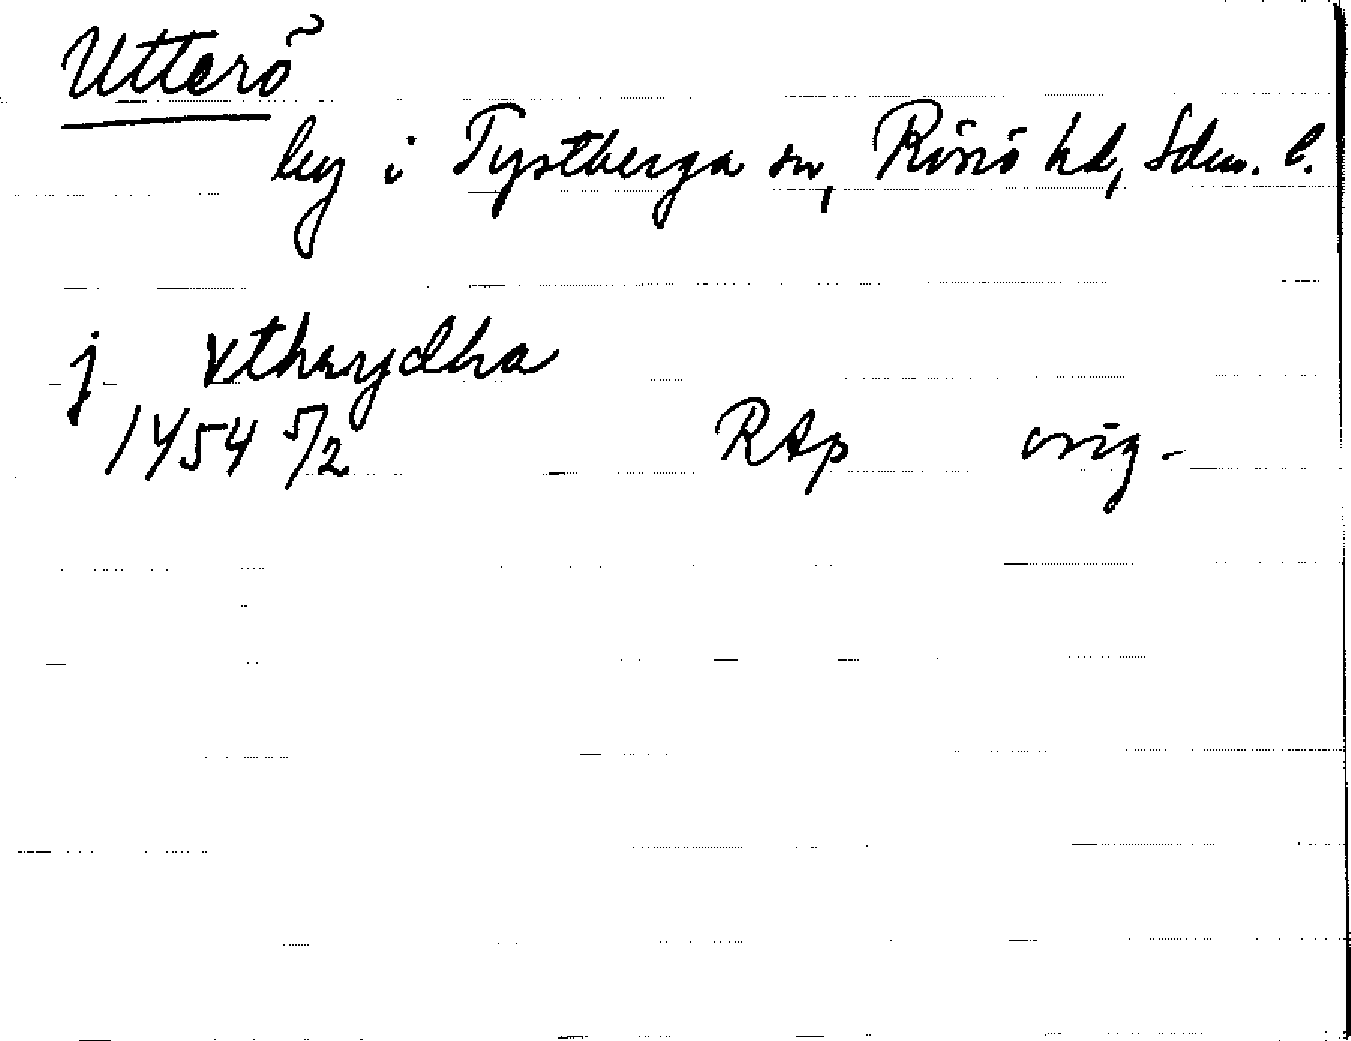 Utterö
by i Tystberga sn, Rönö hd, Sdm. l.
j Vtharydha
1454 5/2 RAp orig.